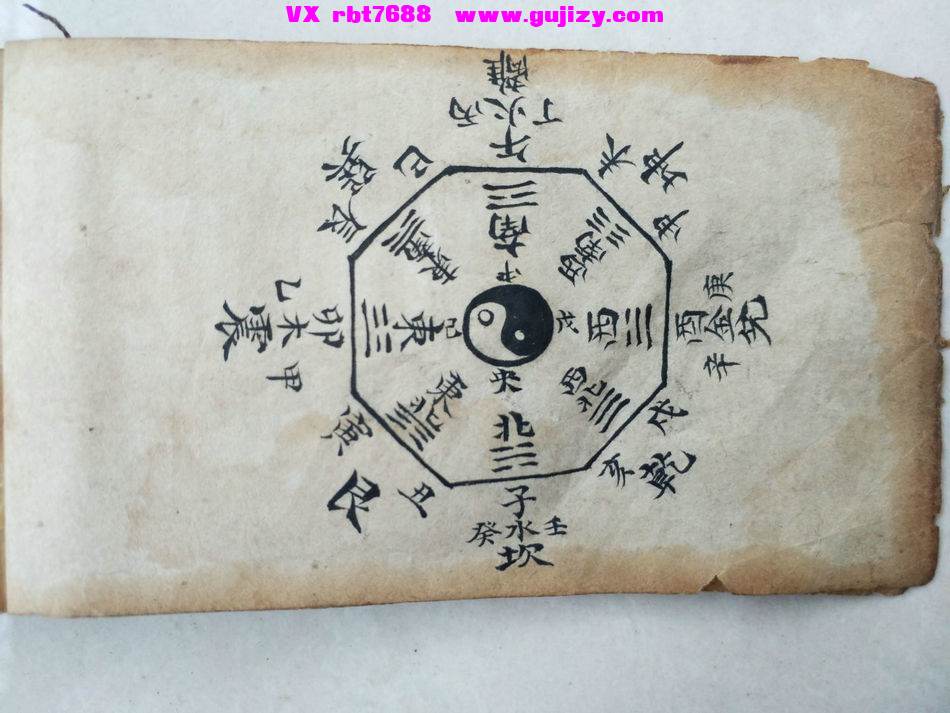 VX rbt7688 www.gujizy.com
離
丁火丙
午
巳
巽
辰
未
坤
南
中
東南
西南
乙
卯
木
震
甲
東
己
戊
西
酉
庚
金
兌
辛
央
東北
西北
北
寅
艮
丑
戌
亥
乾
子
癸水壬
坎